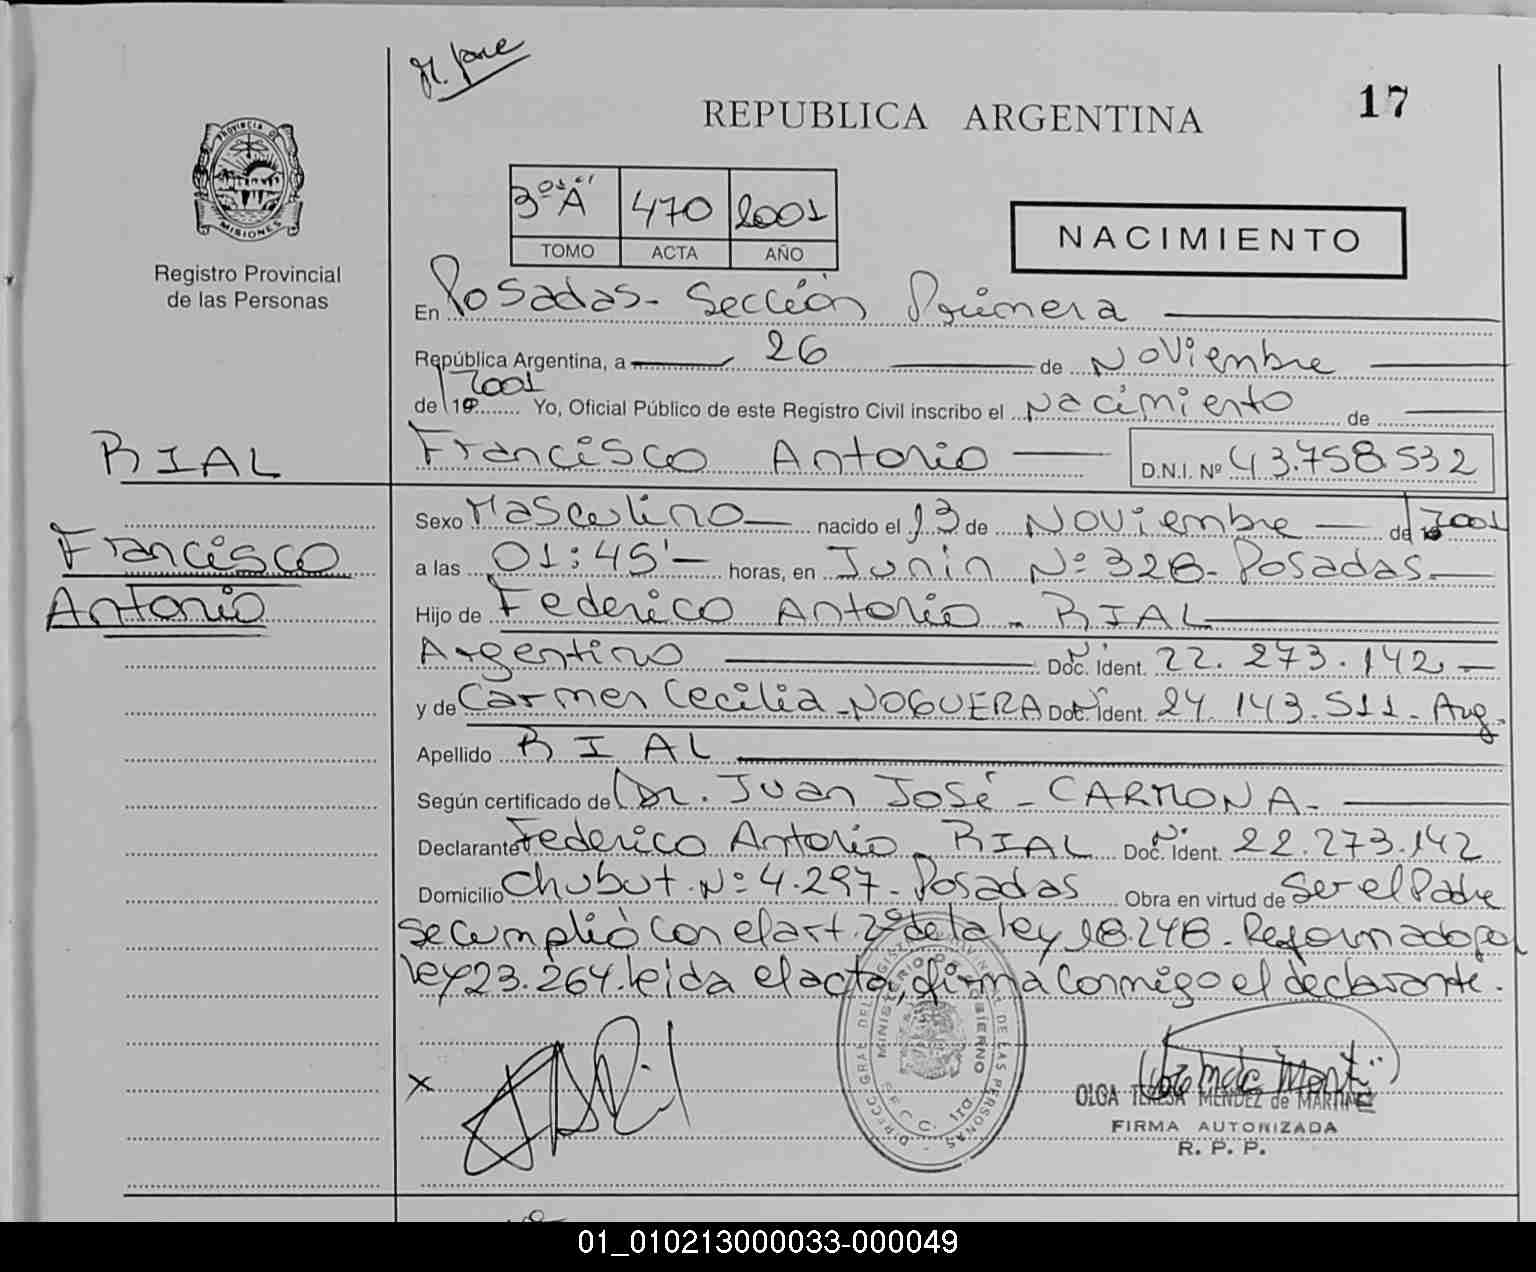 17
REPUBLICA ARGENTINA
PROVINCIA DE
MISIONES
Registro Provincial
de las Personas
3º "A" 470 2001
TOMO ACTA AÑO
NACIMIENTO
En Posadas - Sección Primera
República Argentina, a 26 de Noviembre
de 19 2001 Yo, Oficial Público de este Registro Civil inscribo el Nacimiento de
RIAL
Francisco Antonio D.N.I. Nº 43.758.532
Sexo Masculino nacido el 13 de Noviembre de 2001
Francisco
a las 01:45' horas, en Junin Nº 328 - Posadas.
Antonio
Hijo de Federico Antonio - RIAL
Argentino Doc. Ident. Nº 22.273.142
y de Carmen Cecilia - NOGUERA Doc. Ident. Nº 24.143.511 - Arg.
Apellido RIAL
Según certificado de Dr. Juan José - CARMONA -
Declarante Federico Antonio - RIAL Doc. Ident. Nº 22.273.142
Domicilio Chubut Nº 4.297 - Posadas Obra en virtud de Ser el Padre
Se cumplió con el art. 2º de la ley 18.248 - Reformado por
ley 23.264. leida el acta, firma conmigo el declarante.
DIRECC GRAL DEL REGISTRO PROVINCIAL DE LAS PERSONAS
MINISTERIO DE GOBIERNO
X
OLGA TERESA MENDEZ de MARTINEZ
FIRMA AUTORIZADA
R. P. P.
01_010213000033-000049